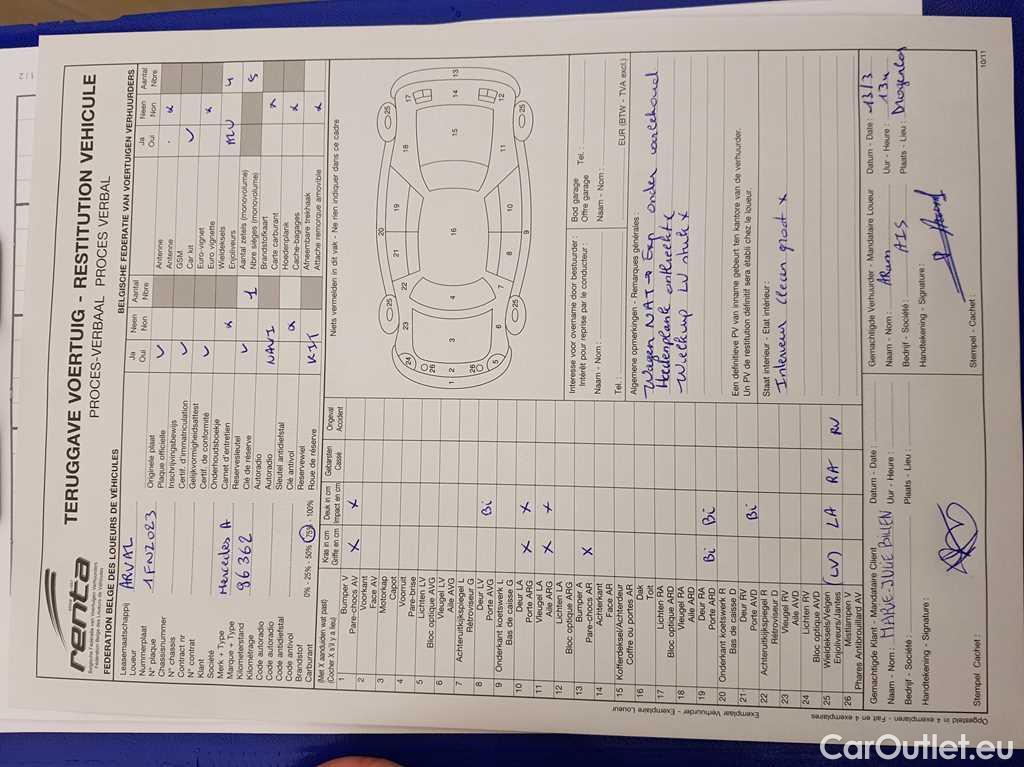 renta
Belgische Federatie van Voertuigen Verhuurders
Fédération Belge des Loueurs de Véhicules
TERUGGAVE VOERTUIG - RESTITUTION VEHICULE
PROCES-VERBAAL PROCES VERBAL
FEDERATION BELGE DES LOUEURS DE VÉHICULES
BELGISCHE FEDERATIE VAN VOERTUIGEN VERHUURDERS
Leasemaatschappij
Loueur
ARVAL
Nummerplaat
N° plaque
1FNZ023
Chassisnummer
N° chassis
Contract nr
N° contrat
Klant
Société
Merk + Type
Marque + Type
Mercedes A
Kilometerstand
Kilométrage
96362
Code autoradio
Code autoradio
Code antidiefstal
Code antivol
Brandstof
Carburant
0% - 25% - 50% - 75% - 100%
Ja Neen Aantal
Oui Non Nbre
Originele plaat
Plaque officielle
Inschrijvingsbewijs
Certif. d'immatriculation
Gelijkvormigheidsattest
Certif. de conformité
Onderhoudsboekje
Carnet d'entretien
Reservesleutel
Clé de réserve
1
Autoradio
Autoradio
NAVI
Sleutel antidiefstal
Clé antivol
Reservewiel
Roue de réserve
KIT
Ja Neen Aantal
Oui Non Nbre
Antenne
Antenne
GSM
Car kit
Euro-vignet
Euro vignette
Wieldeksels
Enjoliveurs
4
Aantal zetels (monovolume)
Nbre sièges (monovolume)
5
Brandstofkaart
Carte carburant
Hoedenplank
Cache-bagages
Afneembare trekhaak
Attache remorque amovible
(Met X aanduiden wat past)
(Cocher les X s'il y a lieu)
Kras in cm
Griffe en cm
Deuk in cm
Impact en cm
Gebarsten
Cassé
Ongeval
Accident
1 Bumper V
Pare-chocs AV X X
2 Voorkant
Face AV
3 Motorkap
Capot
4 Voorruit
Pare-brise
5 Lichten LV
Bloc optique AVG
6 Vleugel LV
Aile AVG
7 Achteruitkijkspiegel L
Rétroviseur G
8 Deur LV
Porte AVG Bi
9 Onderkant koetswerk L
Bas de caisse G
10 Deur LA
Porte ARG X X
11 Vleugel LA
Aile ARG X X
12 Lichten LA
Bloc optique ARG
13 Bumper A
Pare-chocs AR X
14 Achterkant
Face AR
15 Kofferdeksel/Achterdeur
Coffre ou portes AR
16 Dak
Toit
17 Lichten RA
Bloc optique ARD
18 Vleugel RA
Aile ARD
19 Deur RA
Porte ARD Bi Bi
20 Onderkant koetswerk R
Bas de caisse D
21 Deur RV
Porte AVD Bi
22 Achteruitkijkspiegel R
Rétroviseur D
23 Vleugel RV
Aile AVD
24 Lichten RV
Bloc optique AVD
25 Wieldeksels/Velgen
Enjoliveurs/Jantes (LV) LA RA RV
26 Mistlampen V
Phares Antibrouillard AV
Niets vermelden in dit vak - Ne rien indiquer dans ce cadre
Interesse voor overname door bestuurder :
Intérêt pour reprise par le conducteur :
Naam - Nom :
Tel. :
Bod garage
Offre garage
Tel. :
Naam - Nom :
EUR (BTW - TVA excl.)
Algemene opmerkingen - Remarques générales :
Wagen NAT → Exp onder voorbehoud
Hoedenplank ontbreekt
Wielkup LV stuk X
Een definitieve PV van inname gebeurt ten kantore van de verhuurder.
Un PV de restitution définitif sera établi chez le loueur.
Staat interieur - Etat intérieur :
Interieur Cleen groot X
Gemachtigde Klant - Mandataire Client
Datum - Date :
Naam - Nom : MARIE-JULIE BILLEN
Uur - Heure :
Bedrijf - Société :
Plaats - Lieu :
Handtekening - Signature :
Stempel - Cachet :
Gemachtigde Verhuurder - Mandataire Loueur
Datum - Date : 13/3
Naam - Nom :
Uur - Heure : 13u
Bedrijf - Société :
Plaats - Lieu :
Handtekening - Signature :
Stempel - Cachet :
Opgesteld in 4 exemplaren - Fait en 4 exemplaires
Exemplaar Verhuurder - Exemplaire Loueur
10/11
CarOutlet.eu